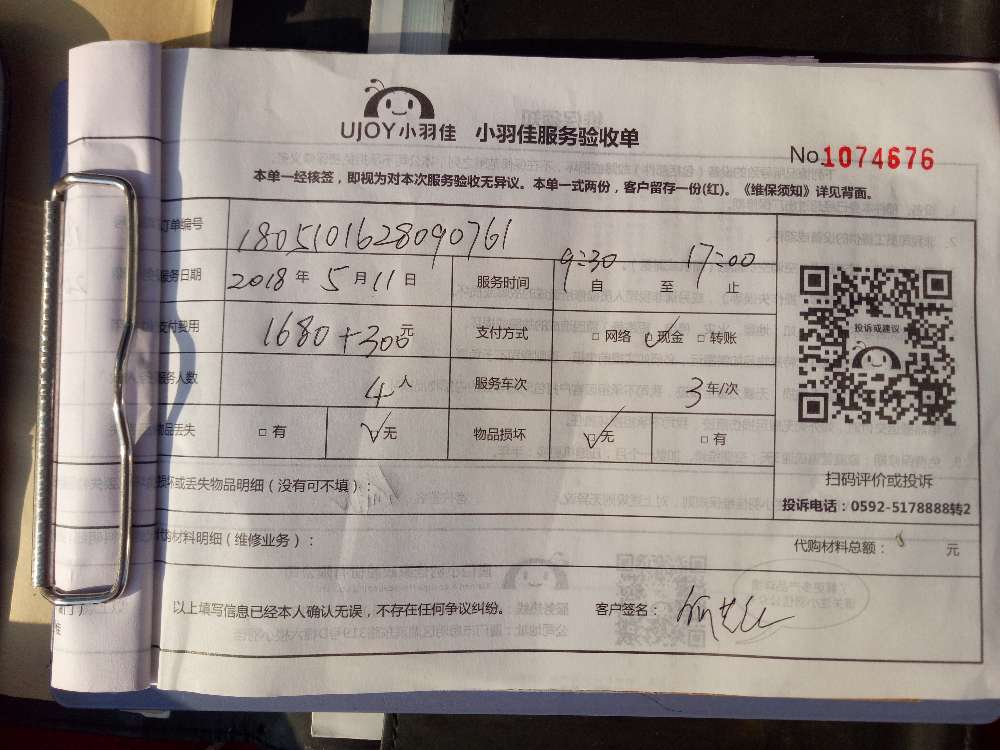 UJOY小羽佳 小羽佳服务验收单
No.1074676
本单一经核签，即视为对本次服务验收无异议。本单一式两份，客户留存一份(红)。《维保须知》详见背面。
订单编号 1805101628090761
服务日期 2018年5月11日 服务时间 9:30 自 至 17:00 止
支付费用 1680+300元 支付方式 □网络 ☑现金 □转账
服务人数 4人 服务车次 3车/次
物品丢失 □有 ☑无 物品损坏 ☑无 □有
投诉或建议
扫码评价或投诉
损坏或丢失物品明细（没有可不填）：
投诉电话：0592-5178888转2
代购材料明细（维修业务）：
代购材料总额： 元
以上填写信息已经本人确认无误，不存在任何争议纠纷。 客户签名：